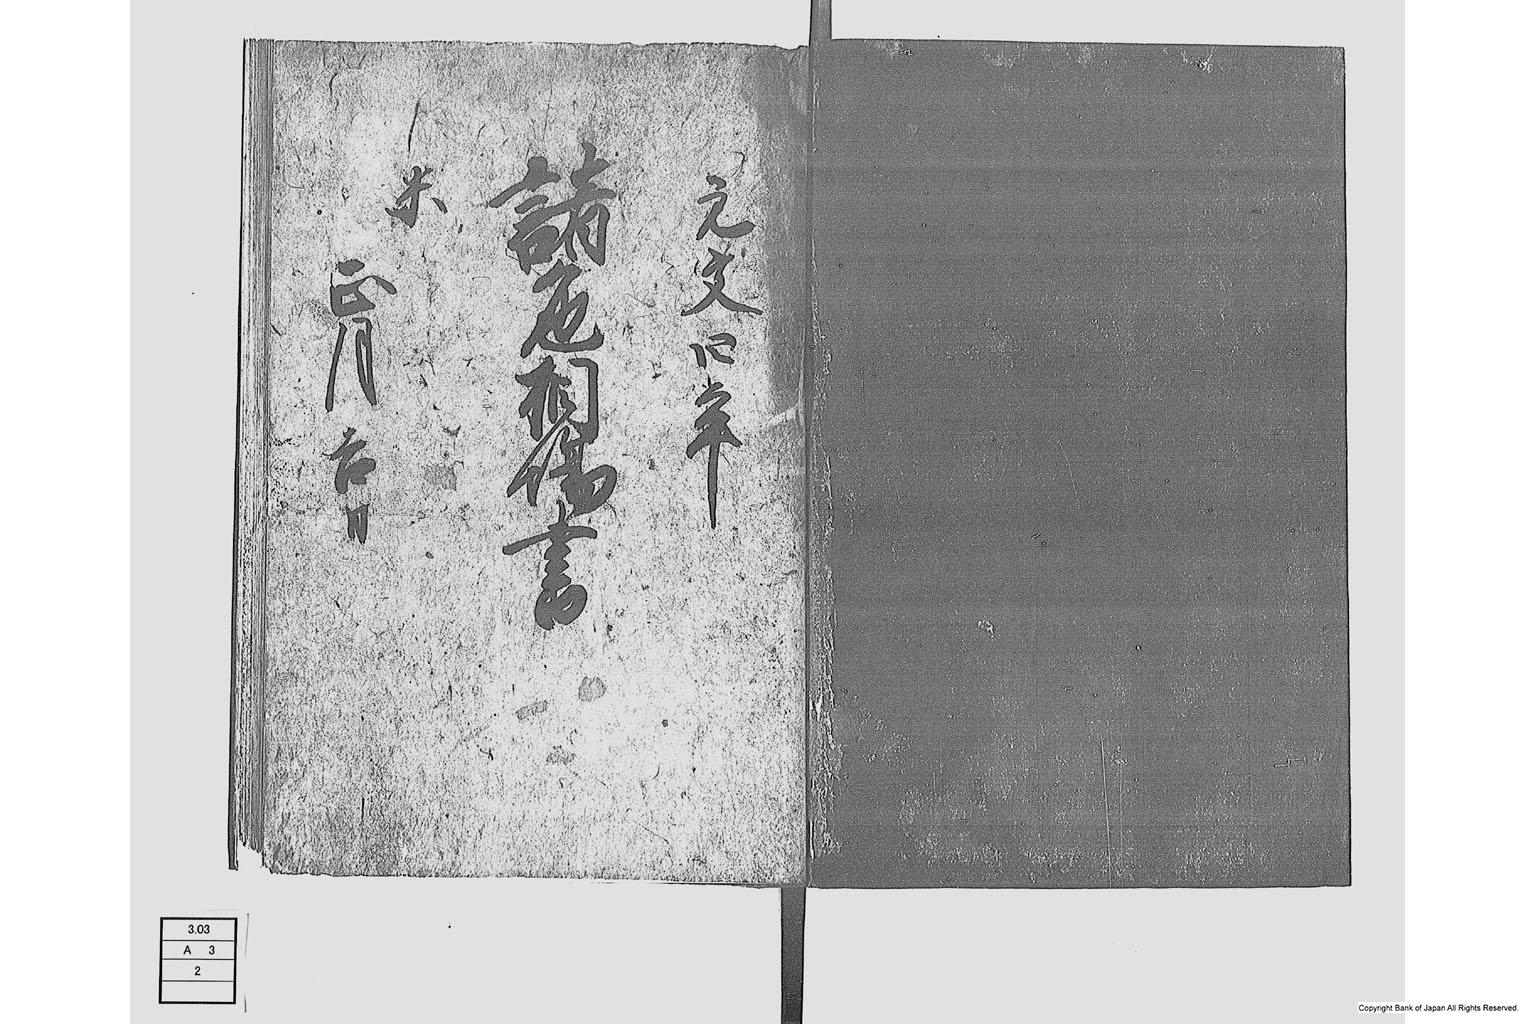 元文四年
諸色相場書
未
正月吉日
3.03
A 3
2
Copyright Bank of Japan All Rights Reserved.